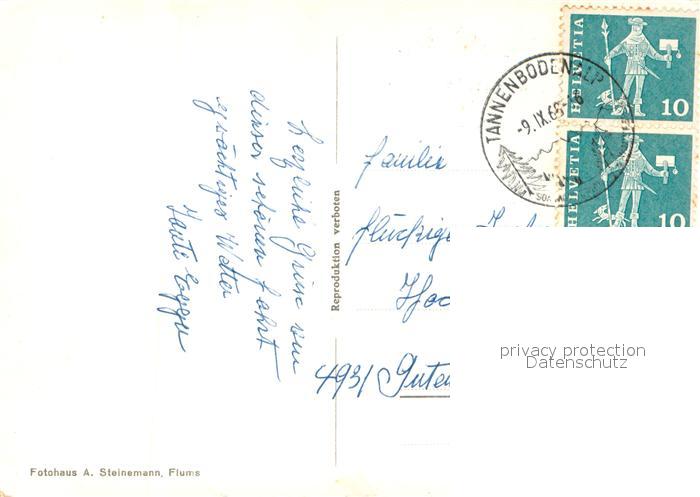 Herzliche Grüsse von
dieser schönen Fahrt
Wetter
Tante
Reproduktion verboten
Fotohaus A. Steinemann, Flums
TANNENBODENALP
-9.IX.65-18
HELVETIA
10
HELVETIA
10
Familie
Flückige
Hoc
4931 Guten
privacy protection
Datenschutz